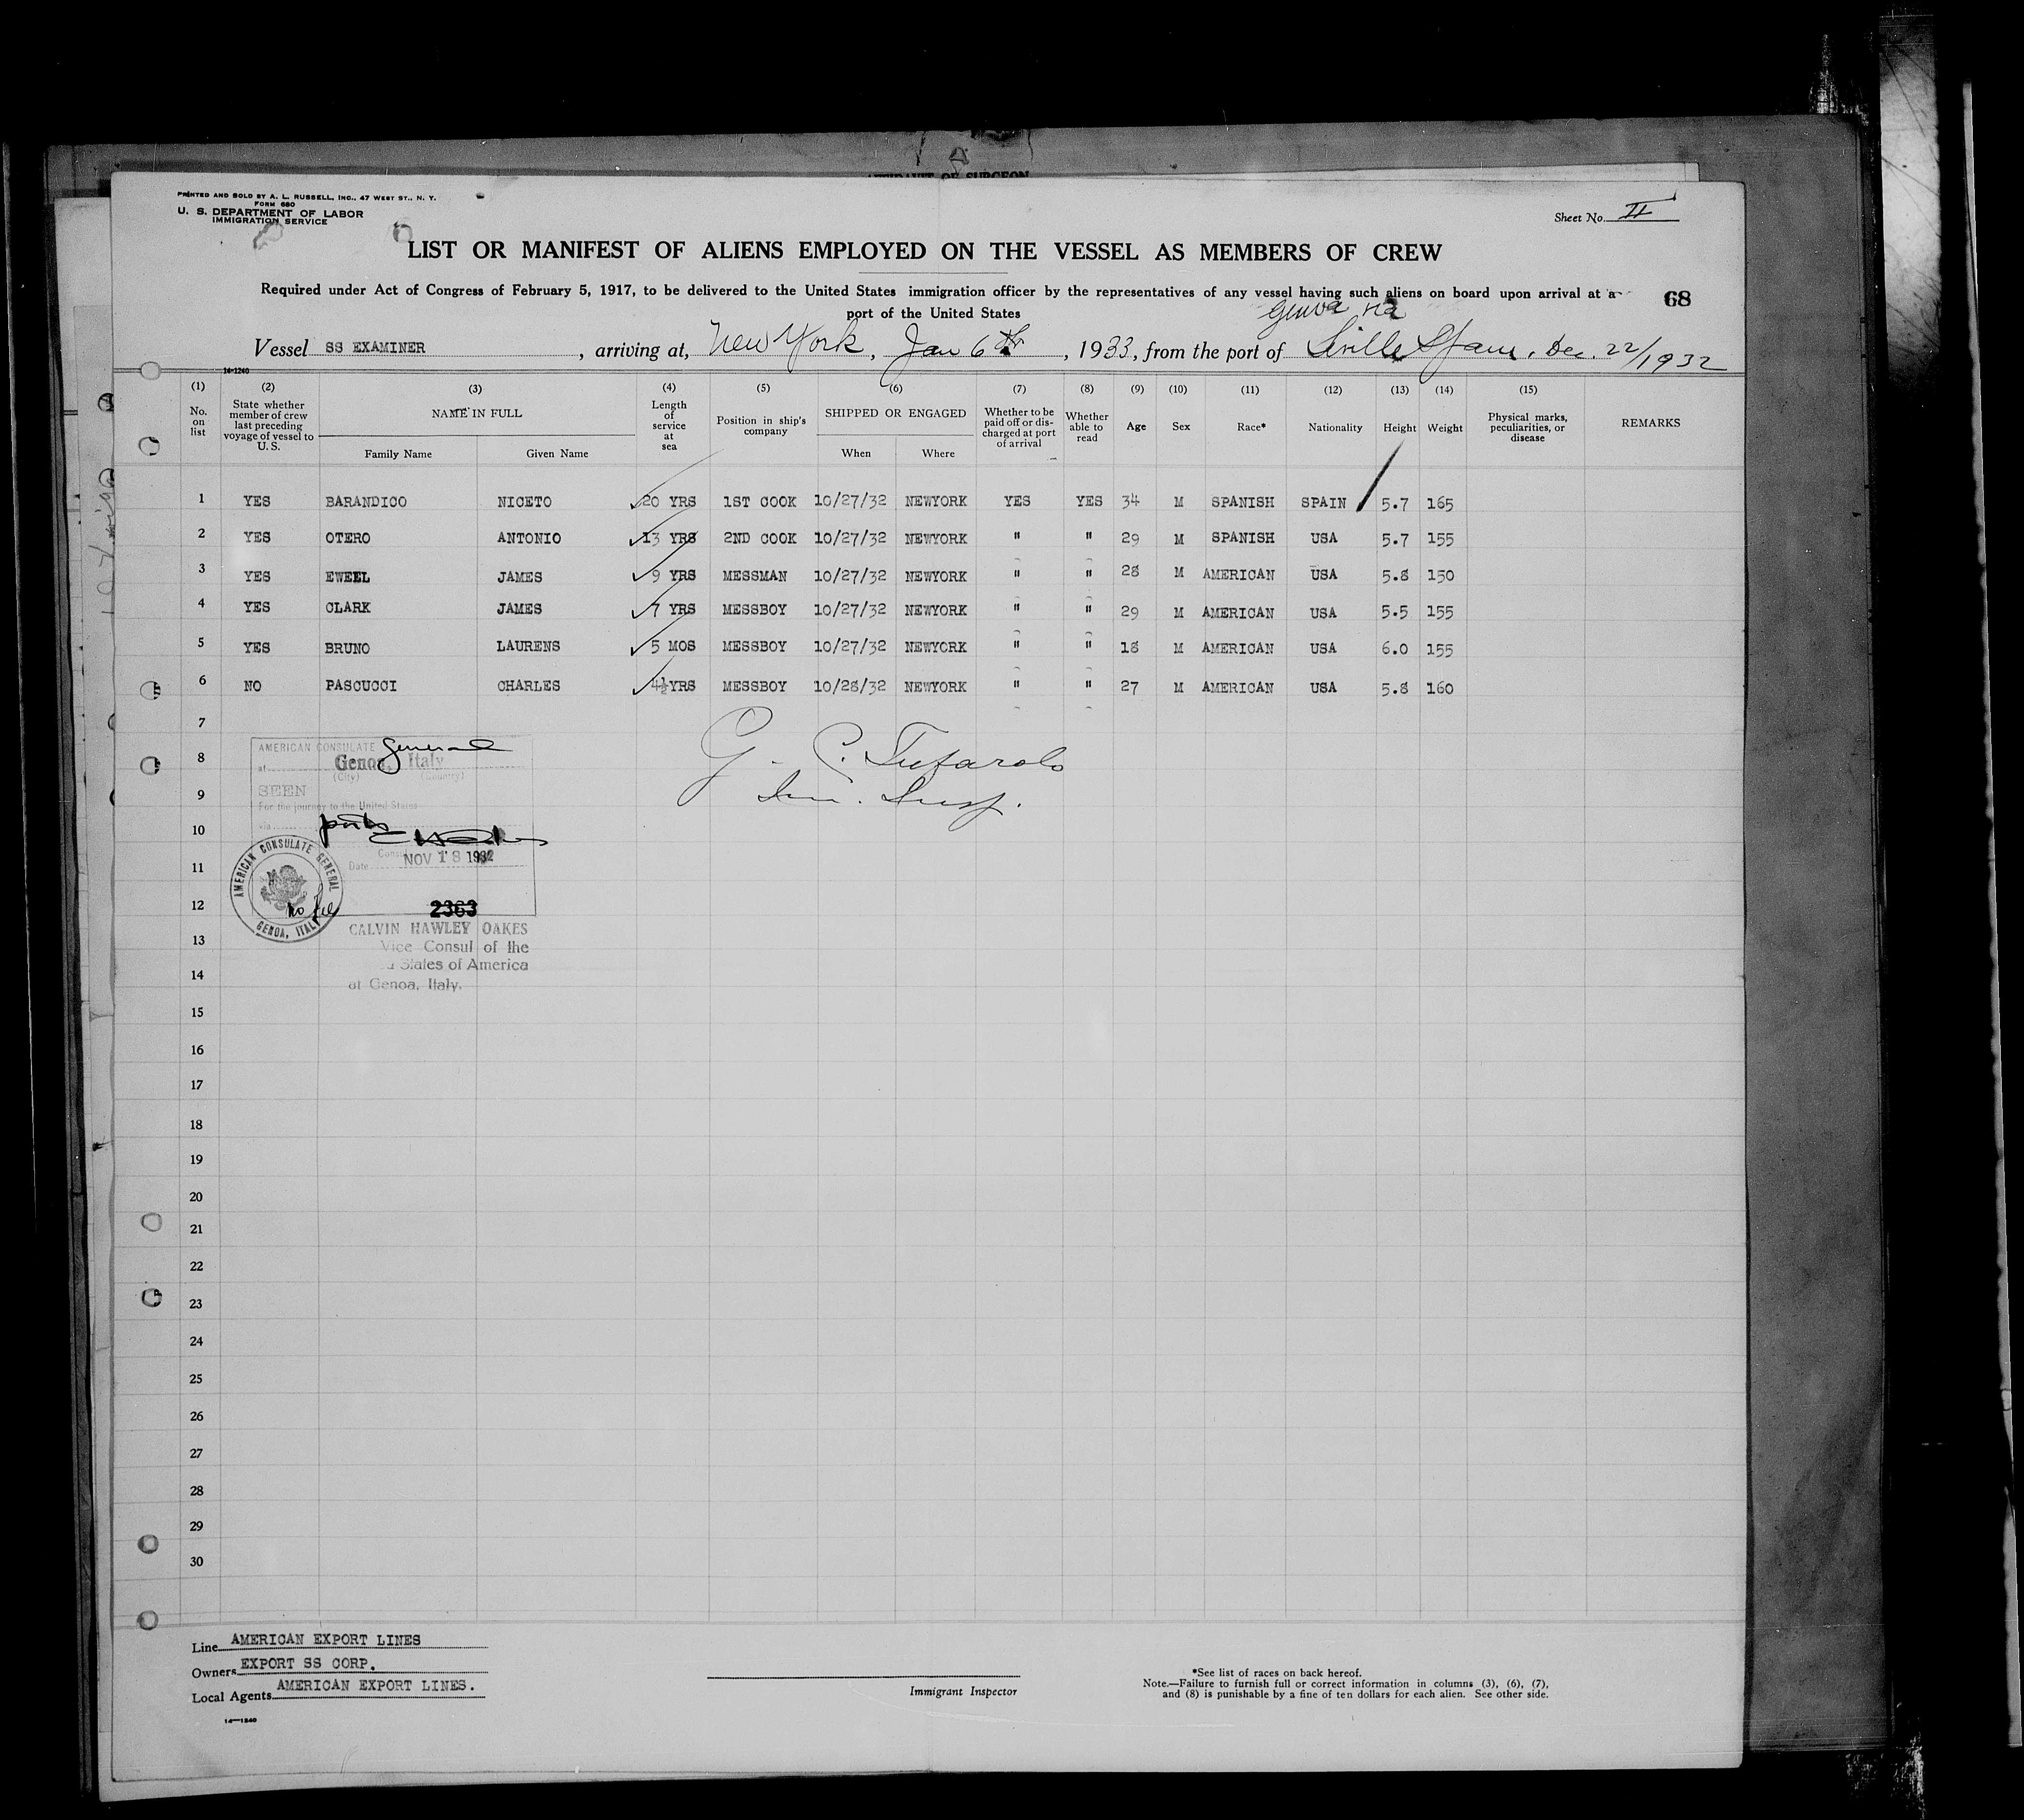 PRINTED AND SOLD BY A. L. RUSSELL, INC., 47 WEST ST., N. Y.
FORM 680
U. S. DEPARTMENT OF LABOR
IMMIGRATION SERVICE
AFFIDAVIT OF SURGEON
Sheet No. II
LIST OR MANIFEST OF ALIENS EMPLOYED ON THE VESSEL AS MEMBERS OF CREW
Required under Act of Congress of February 5, 1917, to be delivered to the United States immigration officer by the representatives of any vessel having such aliens on board upon arrival at a
port of the United States
68
Genoa via
Vessel SS EXAMINER, arriving at, New York, Jan 6th, 1933, from the port of Seville Spain, Dec. 22/1932
14-1240
(1) (2) (3) (4) (5) (6) (7) (8) (9) (10) (11) (12) (13) (14) (15)
No. on list State whether member of crew last preceding voyage of vessel to U. S. NAME IN FULL Length of service at sea Position in ship's company SHIPPED OR ENGAGED Whether to be paid off or discharged at port of arrival Whether able to read Age Sex Race* Nationality Height Weight Physical marks, peculiarities, or disease REMARKS
Family Name Given Name When Where
1 YES BARANDICO NICETO 20 YRS 1ST COOK 10/27/32 NEWYORK YES YES 34 M SPANISH SPAIN 5.7 165
2 YES OTERO ANTONIO 13 YRS 2ND COOK 10/27/32 NEWYORK " " 29 M SPANISH USA 5.7 155
3 YES EWEEL JAMES 9 YRS MESSMAN 10/27/32 NEWYORK " " 28 M AMERICAN USA 5.8 150
4 YES CLARK JAMES 7 YRS MESSBOY 10/27/32 NEWYORK " " 29 M AMERICAN USA 5.5 155
5 YES BRUNO LAURENS 5 MOS MESSBOY 10/27/32 NEWYORK " " 18 M AMERICAN USA 6.0 155
6 NO PASCUCCI CHARLES 4½YRS MESSBOY 10/28/32 NEWYORK " " 27 M AMERICAN USA 5.8 160
7
8
9
10
11
12
13
14
15
16
17
18
19
20
21
22
23
24
25
26
27
28
29
30
AMERICAN CONSULATE General
at Genoa, Italy
(City) (Country)
SEEN
For the journey to the United States
via ports
Date NOV 18 1932
AMERICAN CONSULATE GENERAL
GENOA, ITALY
no fee
2363
CALVIN HAWLEY OAKES
Vice Consul of the
States of America
at Genoa, Italy.
G. C. Tufarolo
Im. Insp.
Line AMERICAN EXPORT LINES
Owners EXPORT SS CORP.
Local Agents AMERICAN EXPORT LINES.
14-1240
Immigrant Inspector
*See list of races on back hereof.
Note.—Failure to furnish full or correct information in columns (3), (6), (7),
and (8) is punishable by a fine of ten dollars for each alien. See other side.